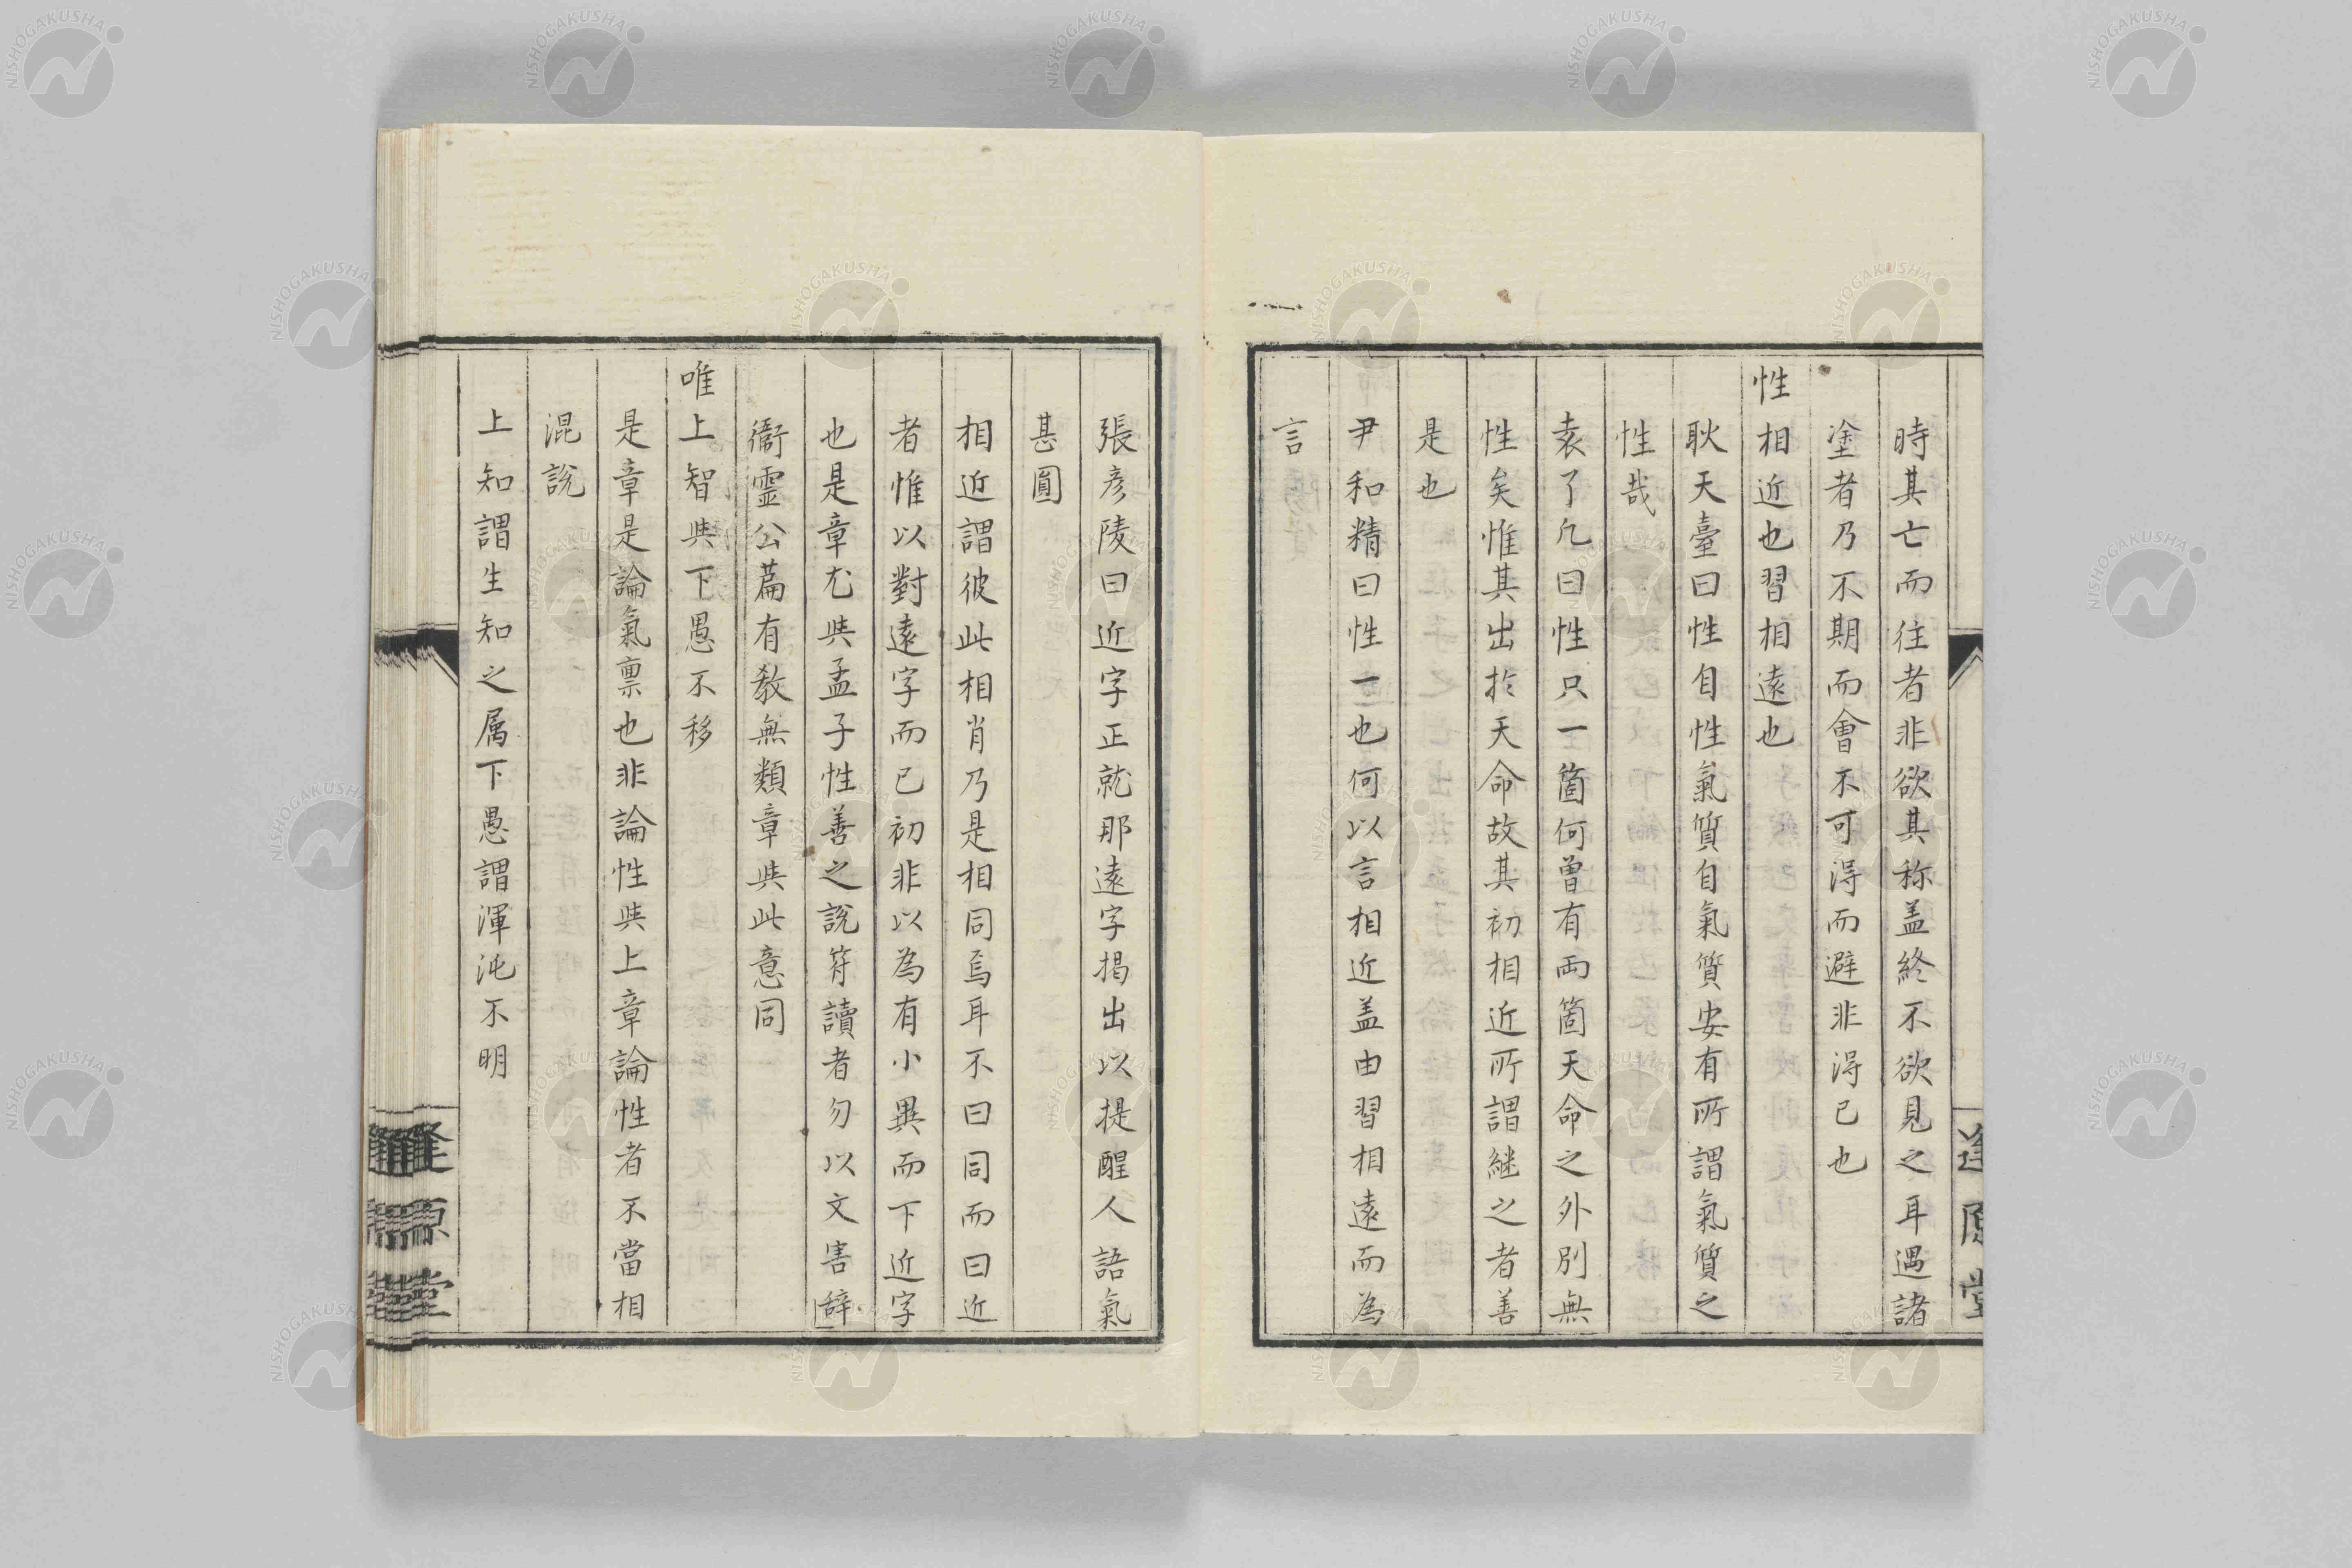 時其亡而往者非欲其称盖終不欲見之耳遇諸
塗者乃不期而會不可得而避非得已也
性相近也習相遠也
耿天臺曰性自性氣質自氣質安有所謂氣質之
性哉
袁了凡曰性只一箇何曽有両箇天命之外別無
性矣惟其出於天命故其初相近所謂継之者善
是也
尹和精曰性一也何以言相近盖由習相遠而為
言
張彦陵曰近字正就那遠字掲出以提醒人語氣
甚圓
相近謂彼此相肖乃是相同焉耳不曰同而曰近
者惟以對遠字而已初非以為有小異而下近字
也是章尤與孟子性善之說符讀者勿以文害辭
衞霊公篇有教無類章與此意同
唯上智與下愚不移
是章是論氣禀也非論性與上章論性者不當相
混説
上知謂生知之属下愚謂渾沌不明
逢原堂
NISHOGAKUSHA